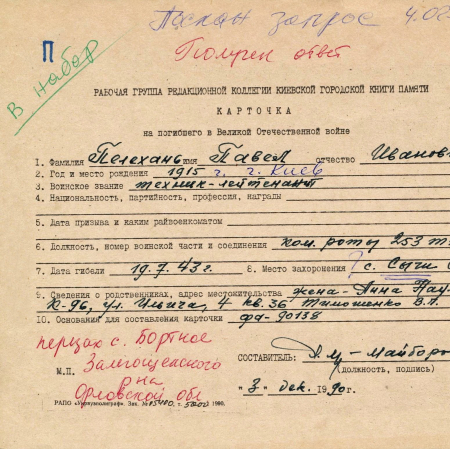 Послан запрос 4.02
П
Получен ответ
В набор
РАБОЧАЯ ГРУППА РЕДАКЦИОННОЙ КОЛЛЕГИИ КИЕВСКОЙ ГОРОДСКОЙ КНИГИ ПАМЯТИ
КАРТОЧКА
на погибшего в Великой Отечественной войне
1. Фамилия Пелехань имя Павел отчество Иванов
2. Год и место рождения 1915 г. г. Киев
3. Воинское звание техник-лейтенант
4. Национальность, партийность, профессия, награды
5. Дата призыва и каким райвоенкоматом
6. Должность, номер воинской части и соединения ком. роты 253 т
7. Дата гибели 19.7.43 г. 8. Место захоронения ? с. Сычи с
9. Сведения о родственниках, адрес местожительства жена - Анна
К-96, ул. Ильича, 4 кв. 36 Тимошенко В.Л.
10. Основания для составления карточки фд-90138
перезах с. Бортное
Залегощенского
р-на
Орловской обл
СОСТАВИТЕЛЬ: Майборо
М.П.
(должность, подпись)
"3" дек. 1990 г.
РАПО «Укрвузполиграф». Зак. № 05400, г. 5000 1990.